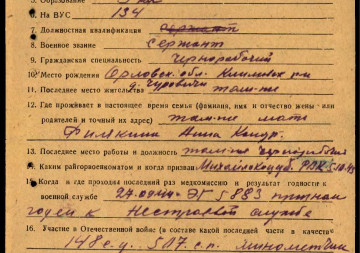 8 Военное звание сержант
6 На ВУС 134
7. Должностная квалификация сержант
9. Гражданская специальность Чернорабочий
10. Место рождения Орловск. обл.
11. Последнее место жительства д. Гуровичи там-же
12. Где проживает в настоящее время семья (фамилия, имя и отчество жены или
родителей и точный их адрес) там-же мать
Анна
13. Последнее место работы и должность там-же чернорабочий
14. Каким райгорвоенкоматом и когда призван РВК
15. Когда и где проходил последний раз медкомиссию и результат годности к
военной службе ЭГ 5883 признан
годен к Нестроевой службе
16. Участие в Отечественной войне (в составе какой последней части в качестве
148 с.д. 507 с.п. минометчик